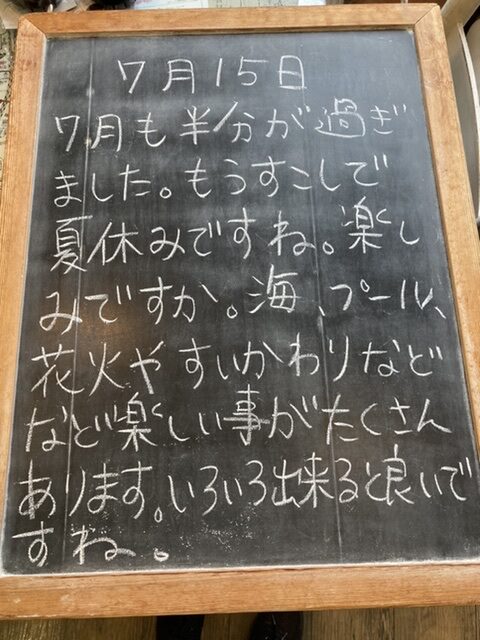 7月15日
7月も半分が過ぎ
ました。もうすこしで
夏休みですね。楽し
みですか。海、プール、
花火やすいかわりなど
など楽しい事がたくさん
あります。いろいろ出来ると良いで
すね。